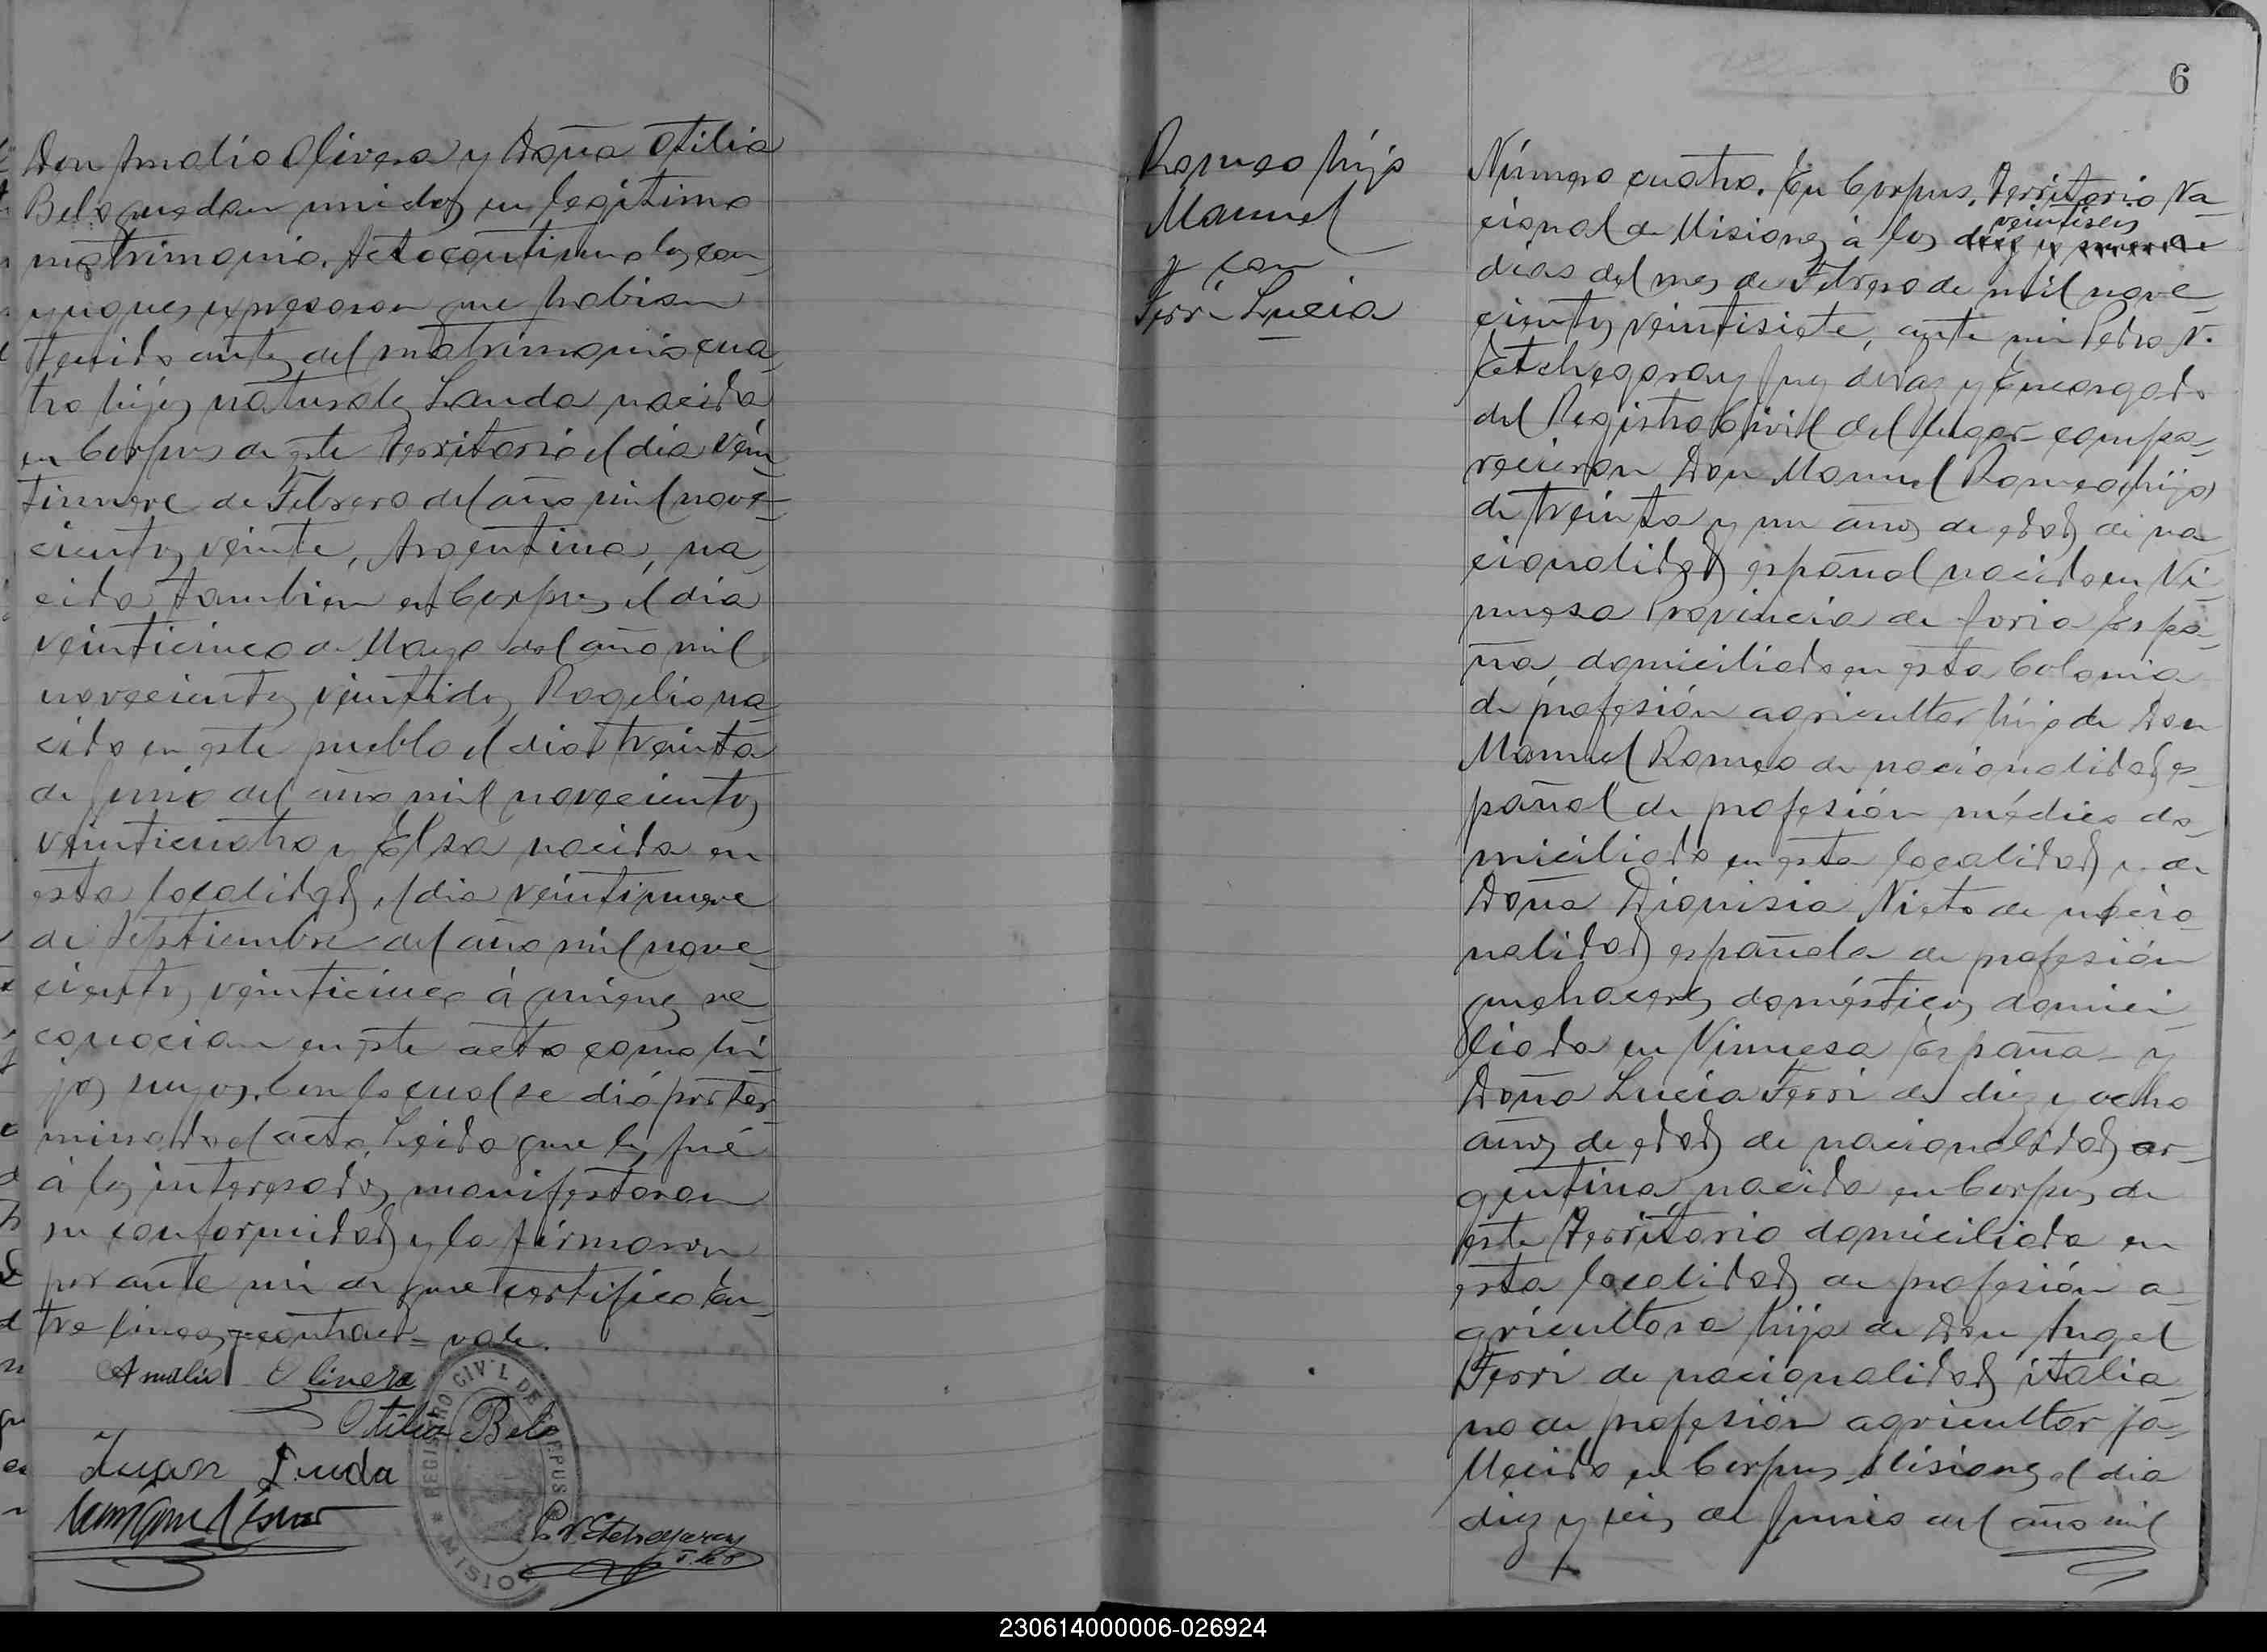 Don Amalio Olivera y Doña Otilia
Belo quedan unidos en legítimo
matrimonio. Acto contínuo los con-
yugues expresaron que habían
tenido antes del matrimonio cua-
tro hijos naturales Landa nacida
en Corpus de este Territorio el día vein-
tinueve de Febrero del año mil nove-
cientos veinte, Argentina, na-
cida tambien en Corpus el día
veinticinco de Mayo del año mil
novecientos veintidos Rogelio na-
cido en este pueblo el día treinta
de Junio del año mil novecientos
veinticuatro y Elsa nacida en
esta localidad el dia veintinueve
de Septiembre del año mil nove-
cientos veinticinco á quienes re-
conocian en este acto como hi-
jos suyos. Con lo cual se dió por ter-
minado el acto. Leida que les fué
á los interesados manifestaron
su conformidad y la firmaron
por ante mi de que certifico En-
tre lineas = contraer = vale.
Amalio Olivera
Otilia Belo
Juan
P. N. Etchegaray
REGISTRO CIVIL DE CORPUS
MISIONES
6
Romeo hijo
Manuel
y con
Ferri Lucia
Número cuatro. En Corpus, Territorio Na-
cional de Misiones á los diez y nueve veintiseis
dias del mes de Febrero de mil nove-
cientos veintisiete, ante mi Pedro N.
Etchegaray Juez de Paz y Encargado
del Registro Civil del lugar compa-
recieron Don Manuel Romeo (hijo)
de treinta y un años de edad de na-
cionalidad español nacido en Vi-
nuesa Provincia de Soria Espa-
ña, domiciliado en esta Colonia
de profesión agricultor hijo de Don
Manuel Romeo de nacionalidad es-
pañol de profesión médico do-
miciliado en esta localidad y de
Doña Dionisia Nieto de nacio-
nalidad española de profesión
quehaceres domésticos domici-
liada en Vinuesa España y
Doña Lucia Ferri de diez y ocho
años de edad de nacionalidad ar-
gentina nacida en Corpus de
este Territorio domiciliada en
esta localidad de profesión a-
gricultora hija de Don Angel
Ferri de nacionalidad italia-
no de profesión agricultor fa-
llecido en Corpus Misiones el dia
diez y seis de Junio del año mil
230614000006-026924